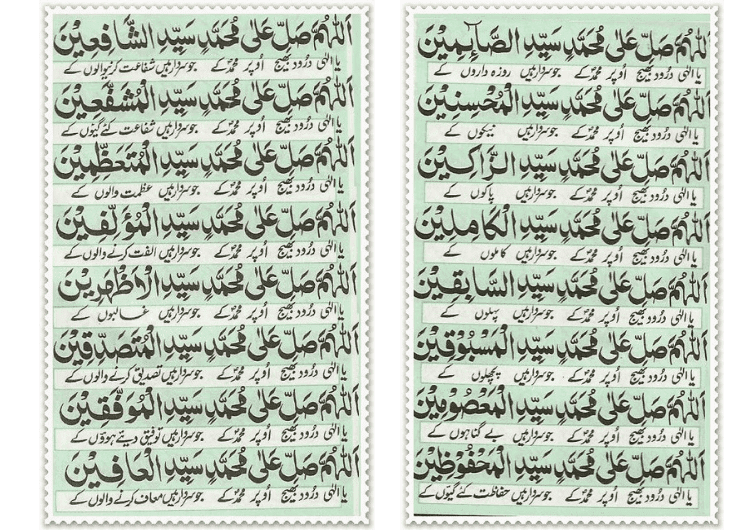 اَللّٰهُمَّ صَلِّ عَلٰى مُحَمَّدٍ سَيِّدِ الصَّآئِمِيْنَ
یا الٰہی درُود بھیج اُوپر محمدؐ کے جو سردار ہیں روزہ داروں کے
اَللّٰهُمَّ صَلِّ عَلٰى مُحَمَّدٍ سَيِّدِ الْمُحْسِنِيْنَ
یا الٰہی درُود بھیج اُوپر محمدؐ کے جو سردار ہیں نیکوں کے
اَللّٰهُمَّ صَلِّ عَلٰى مُحَمَّدٍ سَيِّدِ الزَّاكِيْنَ
یا الٰہی درُود بھیج اُوپر محمدؐ کے جو سردار ہیں پاکوں کے
اَللّٰهُمَّ صَلِّ عَلٰى مُحَمَّدٍ سَيِّدِ الْكَامِلِيْنَ
یا الٰہی درُود بھیج اُوپر محمدؐ کے جو سردار ہیں کاملوں کے
اَللّٰهُمَّ صَلِّ عَلٰى مُحَمَّدٍ سَيِّدِ السَّابِقِيْنَ
یا الٰہی درُود بھیج اُوپر محمدؐ کے جو سردار ہیں پہلوں کے
اَللّٰهُمَّ صَلِّ عَلٰى مُحَمَّدٍ سَيِّدِ الْمَسْبُوْقِيْنَ
یا الٰہی درُود بھیج اُوپر محمدؐ کے جو سردار ہیں پچھلوں کے
اَللّٰهُمَّ صَلِّ عَلٰى مُحَمَّدٍ سَيِّدِ الْمَعْصُوْمِيْنَ
یا الٰہی درُود بھیج اُوپر محمدؐ کے جو سردار ہیں بے گناہوں کے
اَللّٰهُمَّ صَلِّ عَلٰى مُحَمَّدٍ سَيِّدِ الْمَحْفُوْظِيْنَ
یا الٰہی درُود بھیج اُوپر محمدؐ کے جو سردار ہیں حفاظت کئے گیوں کے
اَللّٰهُمَّ صَلِّ عَلٰى مُحَمَّدٍ سَيِّدِ الشَّافِعِيْنَ
یا الٰہی درُود بھیج اُوپر محمدؐ کے جو سردار ہیں شفاعت کرنیوالوں کے
اَللّٰهُمَّ صَلِّ عَلٰى مُحَمَّدٍ سَيِّدِ الْمُشَفَّعِيْنَ
یا الٰہی درُود بھیج اُوپر محمدؐ کے جو سردار ہیں شفاعت کئے گیوں کے
اَللّٰهُمَّ صَلِّ عَلٰى مُحَمَّدٍ سَيِّدِ الْمُتَعَظِّمِيْنَ
یا الٰہی درُود بھیج اُوپر محمدؐ کے جو سردار ہیں عظمت والوں کے
اَللّٰهُمَّ صَلِّ عَلٰى مُحَمَّدٍ سَيِّدِ الْمُؤَلِّفِيْنَ
یا الٰہی درُود بھیج اُوپر محمدؐ کے جو سردار ہیں الفت کرنے والوں کے
اَللّٰهُمَّ صَلِّ عَلٰى مُحَمَّدٍ سَيِّدِ
یا الٰہی درُود بھیج اُوپر محمدؐ کے جو سردار ہیں غالبوں کے
اَللّٰهُمَّ صَلِّ عَلٰى مُحَمَّدٍ سَيِّدِ الْمُتَصَدِّقِيْنَ
یا الٰہی درُود بھیج اُوپر محمدؐ کے جو سردار ہیں تصدیق کرنے والوں کے
اَللّٰهُمَّ صَلِّ عَلٰى مُحَمَّدٍ سَيِّدِ الْمُوَفَّقِيْنَ
یا الٰہی درُود بھیج اُوپر محمدؐ کے جو سردار ہیں توفیق دیئے ہوؤں کے
اَللّٰهُمَّ صَلِّ عَلٰى مُحَمَّدٍ سَيِّدِ الْعَافِيْنَ
یا الٰہی درُود بھیج اُوپر محمدؐ کے جو سردار ہیں معاف کرنے والوں کے